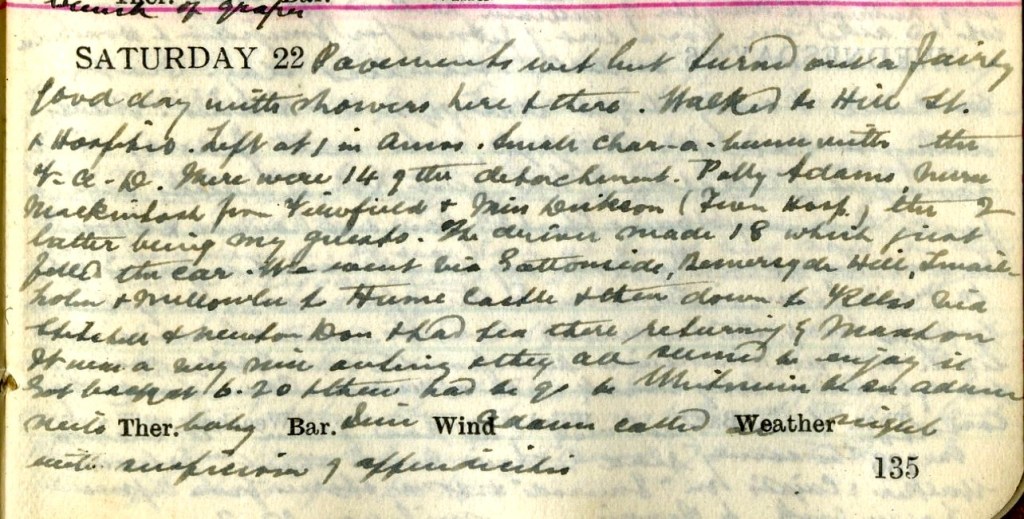 bunch of grapes
SATURDAY 22 Pavements wet but turned out a fairly
good day with showers here & there. Walked to Hill St.
& Hospital. Left at 1 in Small char-a-banc with the
V-A-D. There were 14 of the detachment. Polly Adams, Nurse
Mackintosh from Viewfield & Miss Dickson (Fever Hosp.) the 2
latter being my guests. The driver made 18 which just
filled the car. We went via Gattonside, Bemersyde Hill, Smail-
holm & to Hume Castle & then down to Kelso via
Stichill & Newton Don & had tea there returning by Maxton
It was a very nice outing & they all seemed to enjoy it
Got back at 6.20 & then had to go to to see Adam
Ther. baby Bar. Wind Adam called Weather night
with suspicion of appendicitis
135